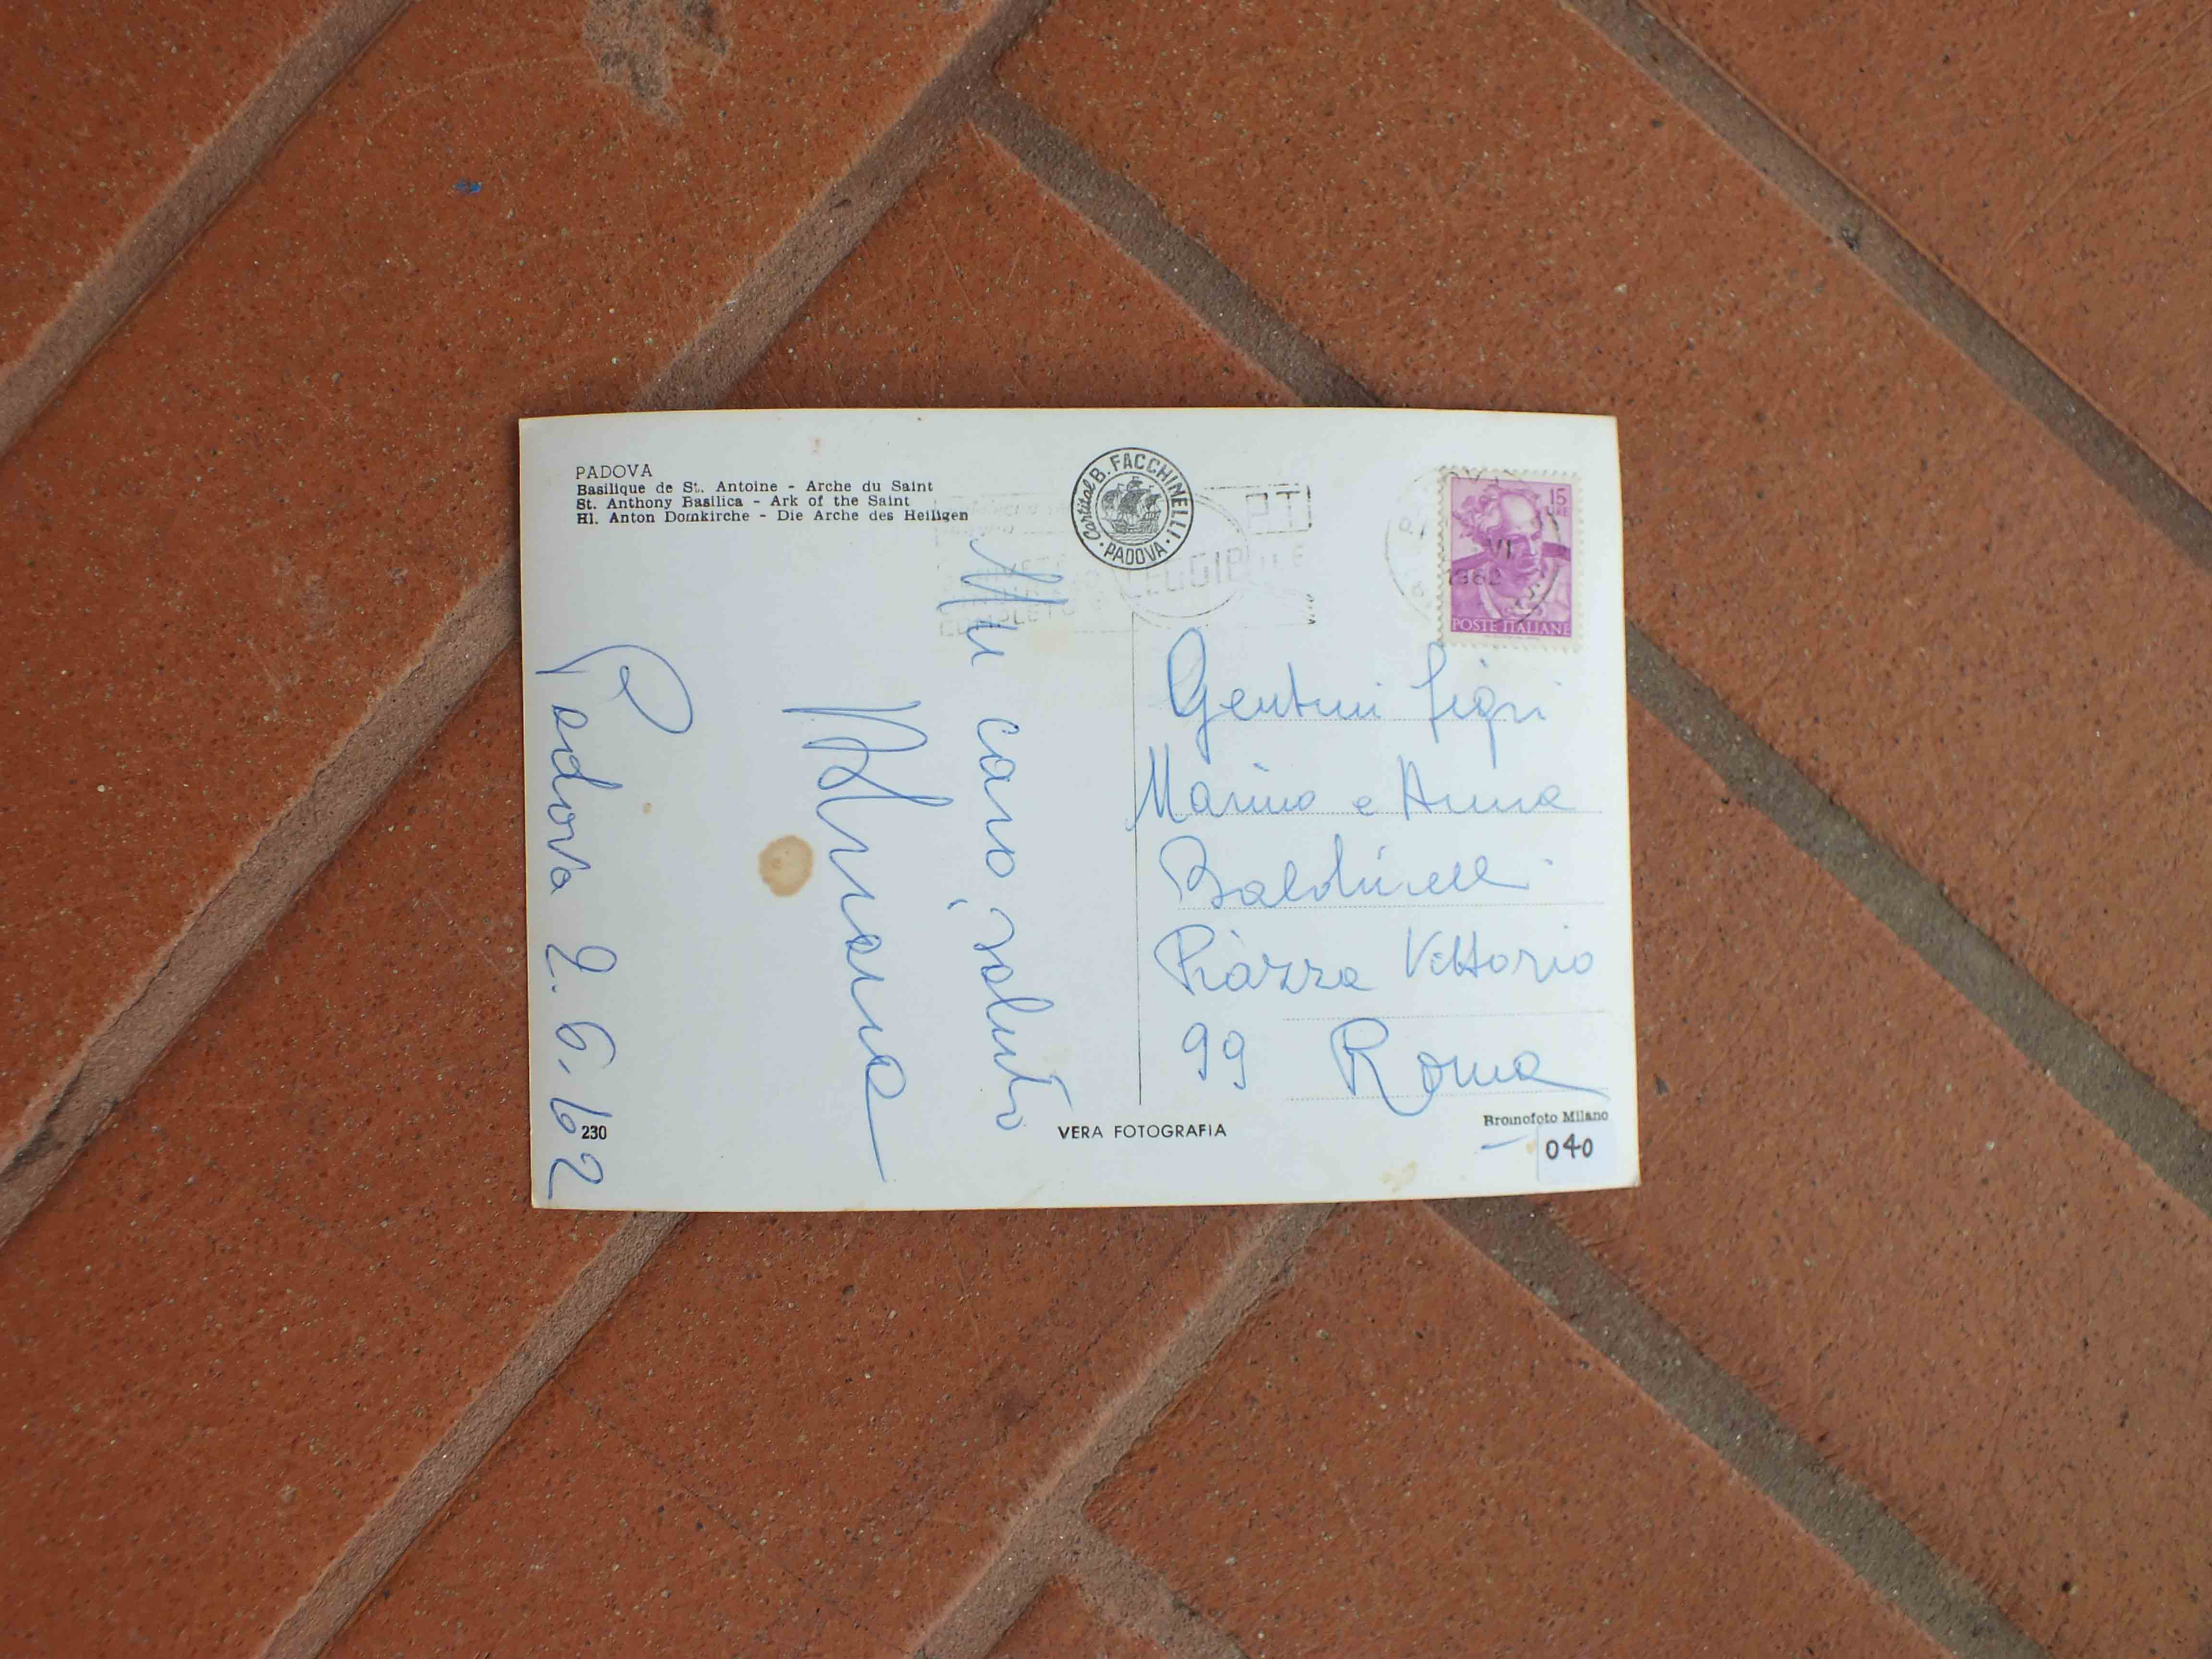 PADOVA
Basilique de St. Antoine - Arche du Saint
St. Anthony Basilica - Ark of the Saint
Hl. Anton Domkirche - Die Arche des Heiligen
Cartital B. FACCHINELLI
· PADOVA ·
P.T.
LEGGIBILE
COMPLETO
15
VI
1962
POSTE ITALIANE
Un caro saluto
Padova 2.6.62
Gentmi Sigri
Marino e Anna
Baldinelli
Piazza Vittorio
99 Roma
230
VERA FOTOGRAFIA
Bromofoto Milano
040